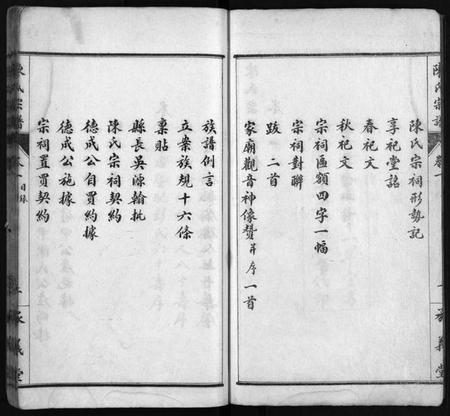 陳氏宗譜
卷一
承義堂
陳氏宗祠形勢記
享祀堂銘
春祀文
秋祀文
宗祠匾額四字一幅
宗祠對聯
跋一二首
家廟觀音神像贊并序一首
族譜例言
立案族規十六條
稟貼
縣長吳源翰批
陳氏宗祠契約
德成公自買約據
德成公施據
宗祠置買契約
陳氏宗譜
卷一
目錄
義堂